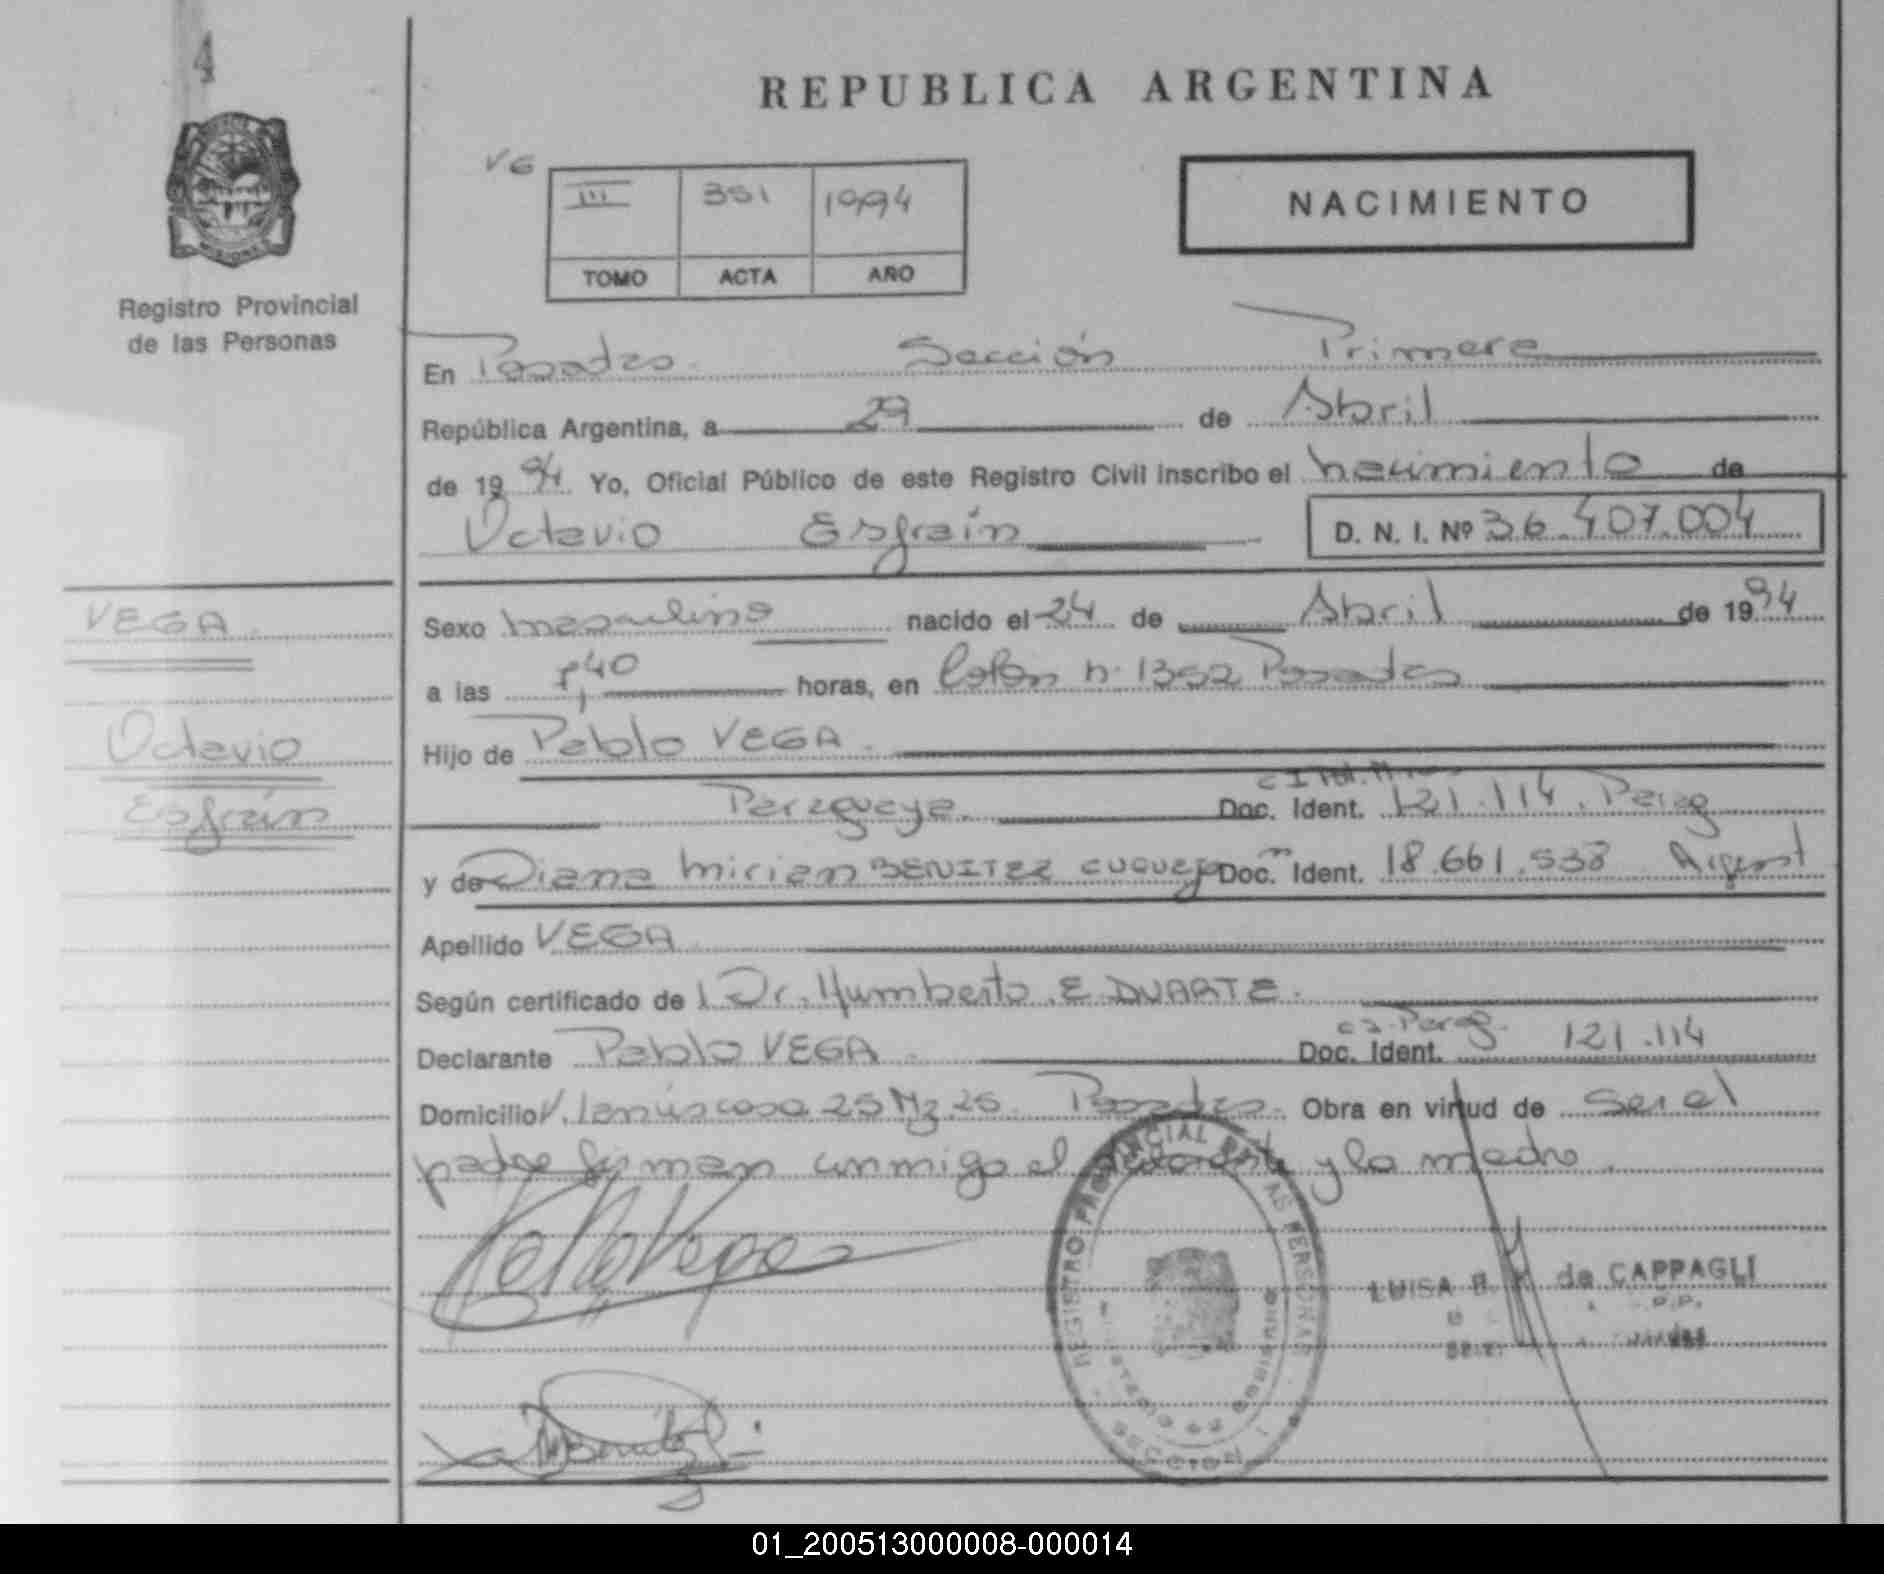 4
REPUBLICA ARGENTINA
VG
III 351 1994
TOMO ACTA AÑO
NACIMIENTO
Registro Provincial
de las Personas
En Posadas. Sección Primera
República Argentina, a 29 de Abril
de 1994 Yo, Oficial Público de este Registro Civil inscribo el nacimiento de
Octavio Esfraín D. N. I. Nº 36.407.004
VEGA
Octavio
Esfraín
Sexo masculino nacido el 24 de Abril de 1994
a las 7,40 horas, en Colón n. 1352 Posadas
Hijo de Pablo VEGA.
Paraguaya. Doc. Ident. 121.114. Parag
y de Diana Mirian BENITEZ CUQUEJO Doc. Ident. 18.661.538 Argent
Apellido VEGA
Según certificado de Dr. Humberto E DUARTE.
Declarante Pablo VEGA. Doc. Ident. 121.114
Domicilio V. Lanús casa 25 Mz 25. Posadas. Obra en virtud de ser el
padre firman conmigo el y la madre.
REGISTRO PROVINCIAL DE LAS PERSONAS
SECCION I
LUISA B. de CAPPAGLI
01_200513000008-000014